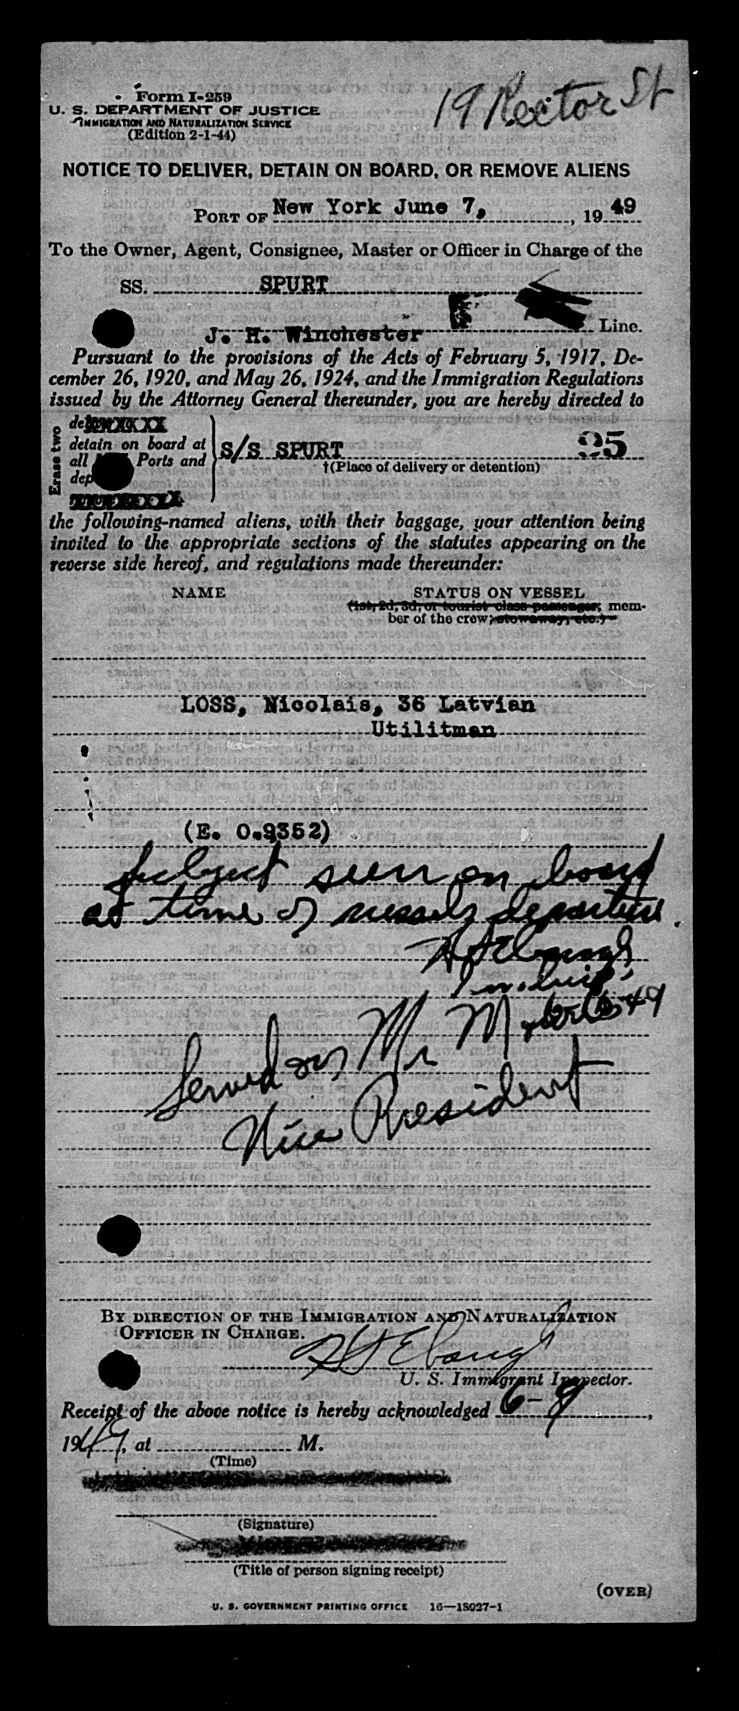 19 Rector St
Form I-259
U. S. DEPARTMENT OF JUSTICE
IMMIGRATION AND NATURALIZATION SERVICE
(Edition 2-1-44)
NOTICE TO DELIVER, DETAIN ON BOARD, OR REMOVE ALIENS
PORT OF New York June 7, , 19 49
To the Owner, Agent, Consignee, Master or Officer in Charge of the
SS. SPURT
J. H. Winchester Line.
Pursuant to the provisions of the Acts of February 5, 1917, De-
cember 26, 1920, and May 26, 1924, and the Immigration Regulations
issued by the Attorney General thereunder, you are hereby directed to
Erase two
detain on board at
all Ports and
S/S SPURT 95
†(Place of delivery or detention)
the following-named aliens, with their baggage, your attention being
invited to the appropriate sections of the statutes appearing on the
reverse side hereof, and regulations made thereunder:
NAME STATUS ON VESSEL
(1st, 2d, 3d, or tourist class passenger; mem-
ber of the crew; stowaway, etc.)
LOSS, Nicolais, 36 Latvian
Utilitman
(E. 0.9352)
Subject seen on board
at time of vessels departure.
Served on Mr M
Vice President
BY DIRECTION OF THE IMMIGRATION AND NATURALIZATION
OFFICER IN CHARGE.
U. S. Immigrant Inspector.
Receipt of the above notice is hereby acknowledged 6-9 ,
1949, at M.
(Time)
(Signature)
(Title of person signing receipt)
(OVER)
U. S. GOVERNMENT PRINTING OFFICE 16—18027-1